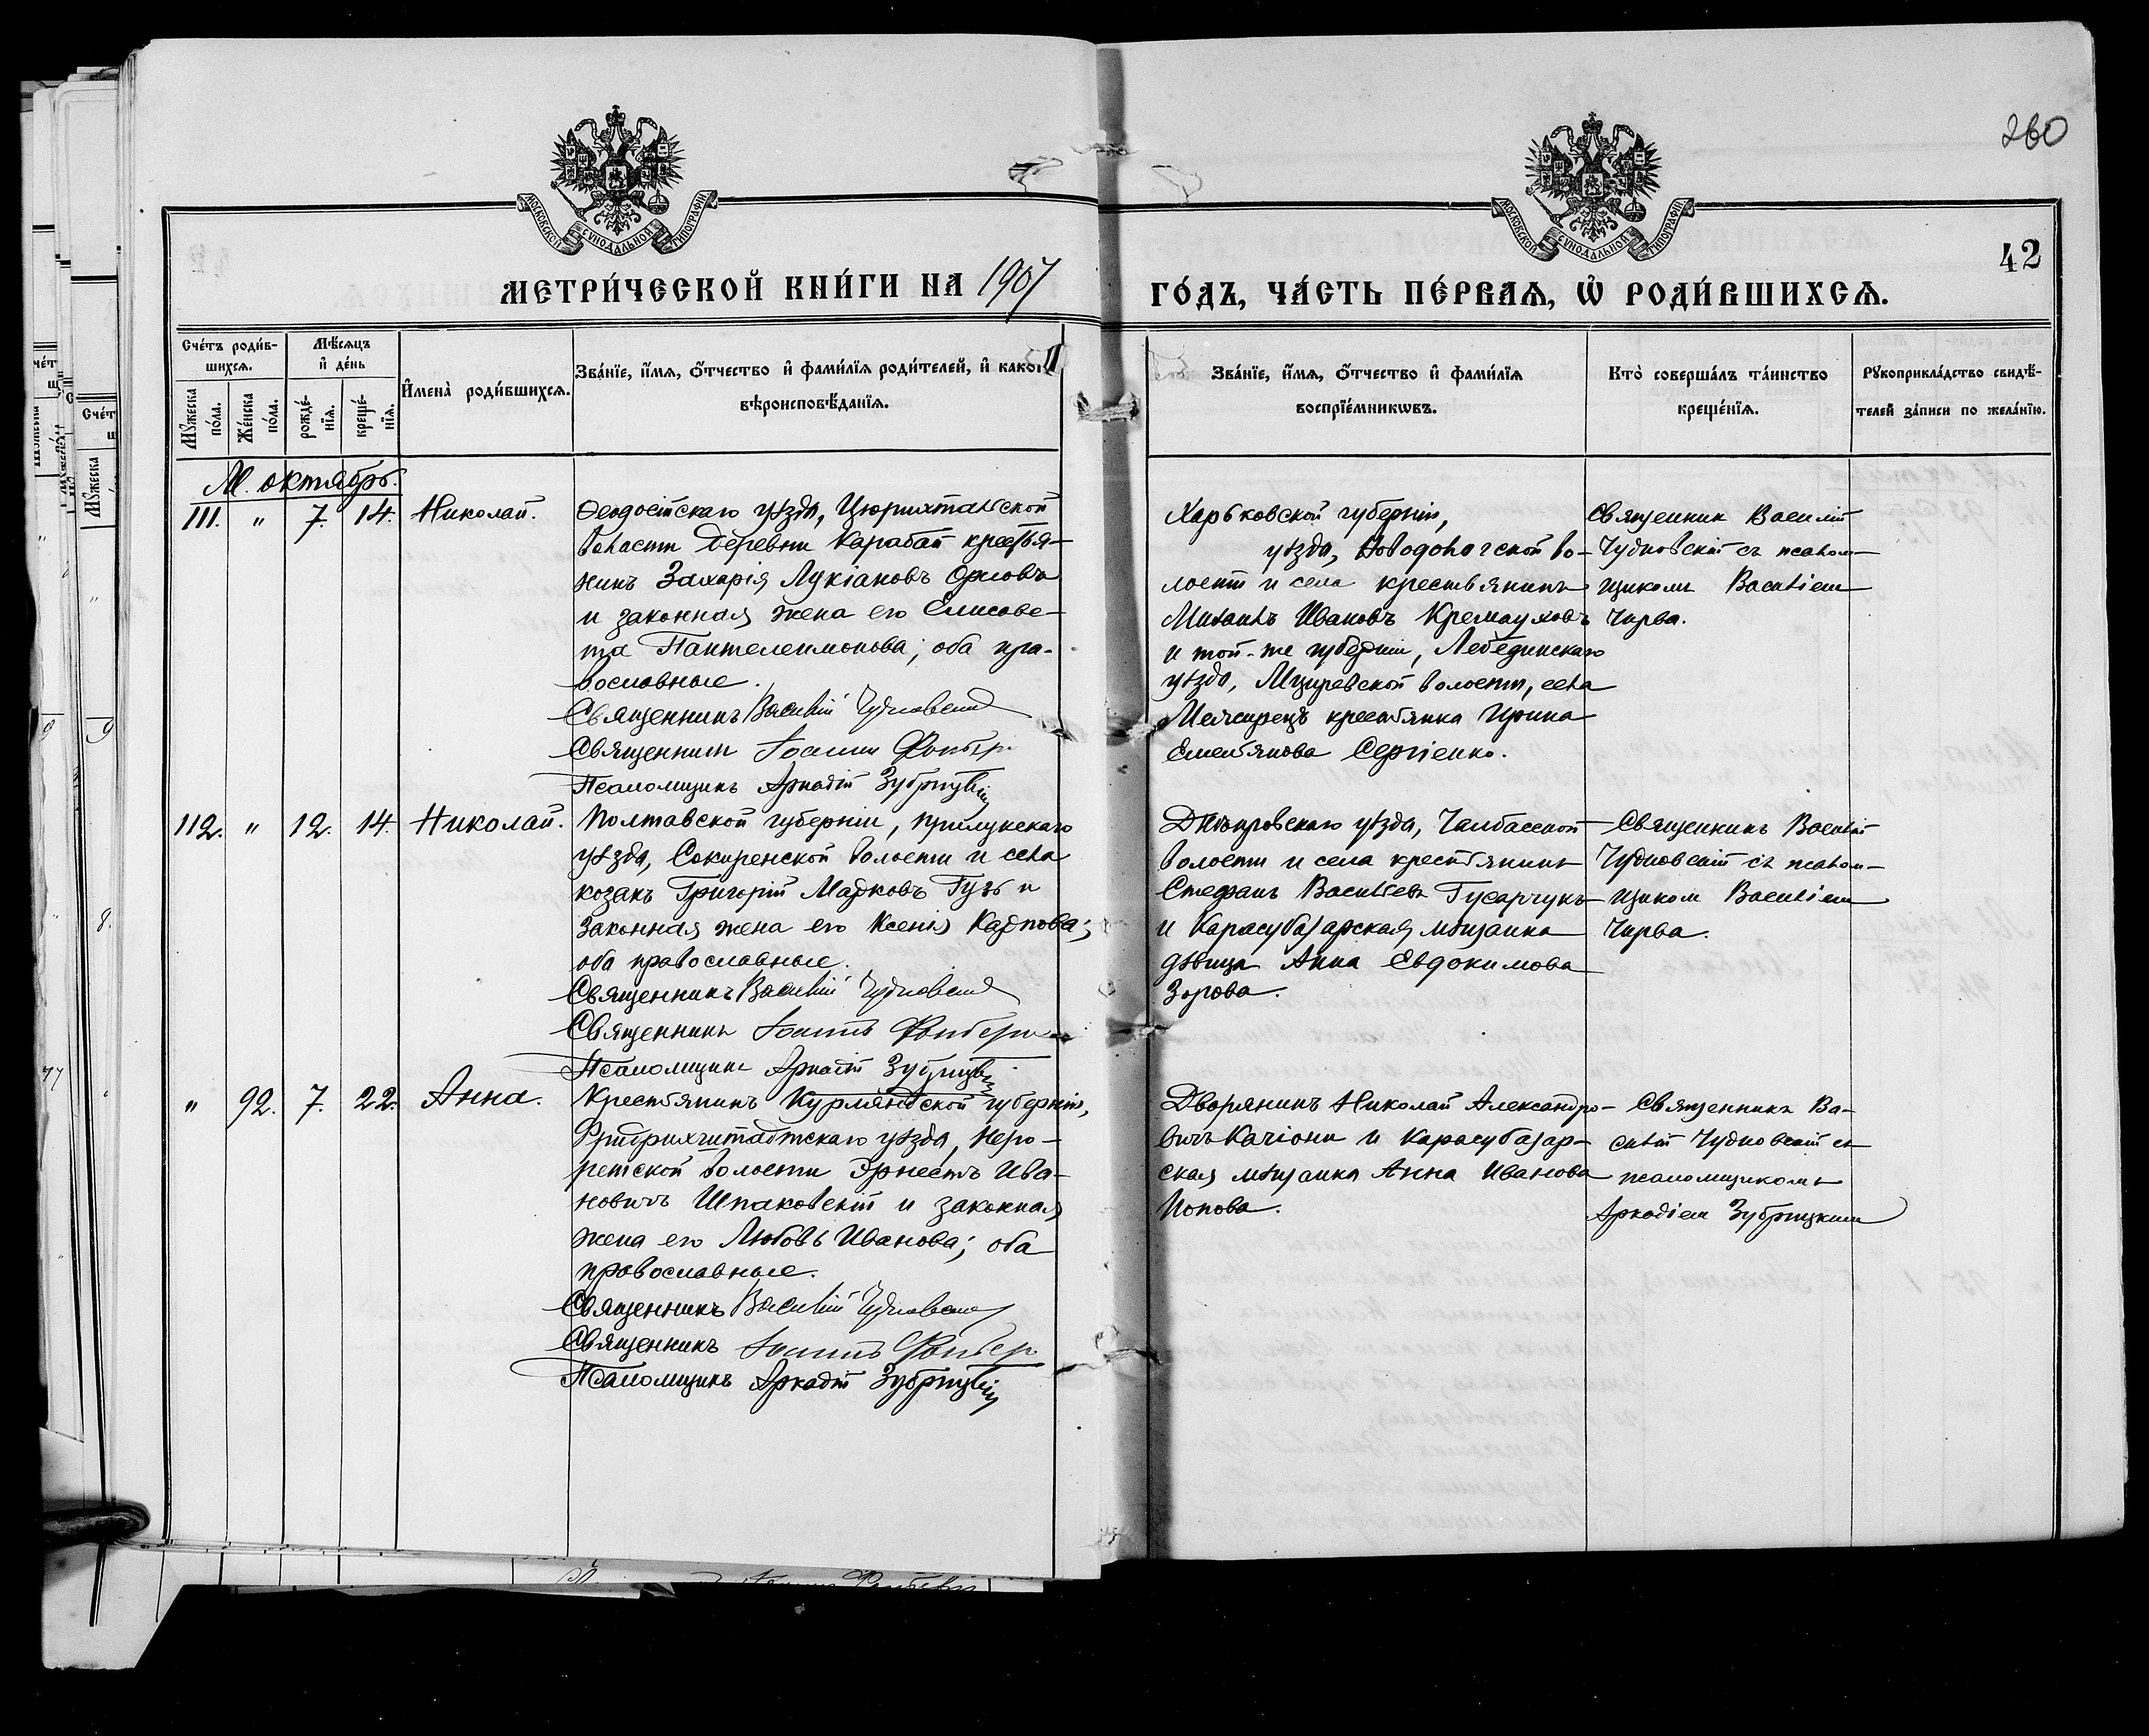 260
МОСКОВСКОЙ СУНОДАЛЬНОЙ ТИПОГРАФІИ
МОСКОВСКОЙ СУНОДАЛЬНОЙ ТИПОГРАФІИ
42
МЕТРИ́ЧЕСКОЙ КНИ́ГИ НА 1907
ГО́ДЪ, ЧА́СТЬ ПЕ́РВАѦ, Ѡ҆ РОДИ́ВШИХСѦ.
Сче́тъ роди́в-
шихсѧ.
Мѣ́сѧцъ
и҆ де́нь
Мꙋжеска
по́ла.
Же́нска
по́ла.
рожде́-
нїѧ.
креще́-
нїѧ.
И҆мена̀ роди́вшихсѧ.
Зва́нїе, и҆́мѧ, ѻ҆́тчество и҆ фами́лїѧ роди́телей, и҆ како
вѣроисповѣ́данїѧ.
Зва́нїе, и҆́мѧ, ѻ҆́тчество и҆ фами́лїѧ
воспрїе́мникѡвъ.
Кто̀ соверша́лъ та́инство
креще́нїѧ.
Рꙋкоприкла́дство свидѣ́-
телей за́писи по жела́нїю.
М. октябрь.
111. " 7. 14. Николай.
Ѳеодосійскаго уѣзда, Цюрихтальской
волости деревни Карабай крестья-
нинъ Захарія Лукіановъ Орловъ
и законная жена его Елисаве-
та Пантелеимонова; оба пра-
вославные.
Священникъ Василій Чудновскій
Священникъ Іоаннъ
Псаломщикъ Аркадій Зубрицкій
Харьковской губерніи,
уѣзда, Новодологской во-
лости и села крестьянинъ
Михаилъ Ивановъ
и той-же губерніи, Лебединскаго
уѣзда, волости, села
Межирецъ крестьянка Ирина
Емельянова Сергіенко.
Священникъ Василій
Чудновскій съ псалом-
щикомъ Василіем
Чирва.
112. " 12. 14. Николай.
Полтавской губерніи, Прилукскаго
уѣзда, Сокиренской волости и села
козакъ Григорій Марковъ Гузь и
законная жена его Ксенія Карпова;
оба православные.
Священникъ Василій Чудновскій
Священникъ Іоаннъ
Псаломщикъ Аркадій Зубрицкій
Днѣпровскаго уѣзда, Чалбасской
волости и села крестьянинъ
Стефанъ Васильевъ Гусарчукъ
и Карасубазарская мѣщанка
дѣвица Анна Евдокимова
Зорова.
Священникъ Василій
Чудновскій съ псалом-
щиком Василіем
Чирва.
" 92. 7. 22. Анна.
Крестьянинъ Курляндской губерніи,
Фридрихштадтскаго уѣзда, Неро-
ретской волости Эрнестъ Ива-
новичъ Шпаковскій и законная
жена его Любовь Иванова; оба
православные.
Священникъ Василій Чудновскій
Священникъ Іоаннъ
Псаломщикъ Аркадій Зубрицкій
Дворянинъ Николай Александро-
вичъ Качіони и Карасубазар-
ская мѣщанка Анна Иванова
Попова.
Священникъ Ва-
силій Чудновскій съ
псаломщикомъ
Аркадіем Зубрицким